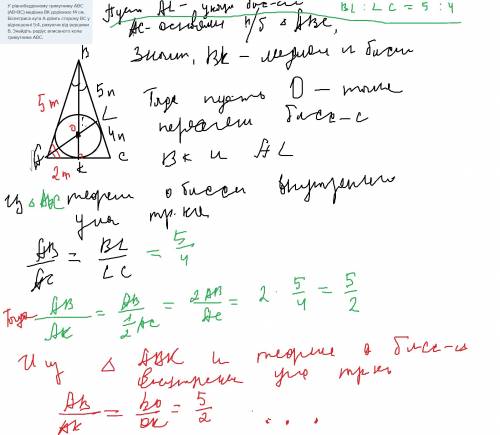 У рівнобедреному трикутнику ABC
(AB=BC) медіана BK дорівнює 14 см.
Бісектриса кута A ділить сторону BC у
відношенні 5:4, рахуючи від вершини
B. Знайдіть радіус вписаного кола
трикутника ABC.
Пусть AL -
BL : LC = 5 : 4
AC - основание р/б △ ABC,
Значит, BK - медиан и бисс
Тогда пусть O - точка
пересеч бисс-с
BK и AL
B
5m
5n
O
L
4n
A
2m
K
C
Из △ ABC теорем о биссы внутреннего
угла тр-ка
AB/AC = BL/LC = 5/4
Тогда AB/AK = AB/(1/2 AC) = 2AB/AC = 2 · 5/4 = 5/2
И из △ ABK и теореме о бисс-с
внутрен угла тр-ка
AB/AK = BO/OK = 5/2 ...